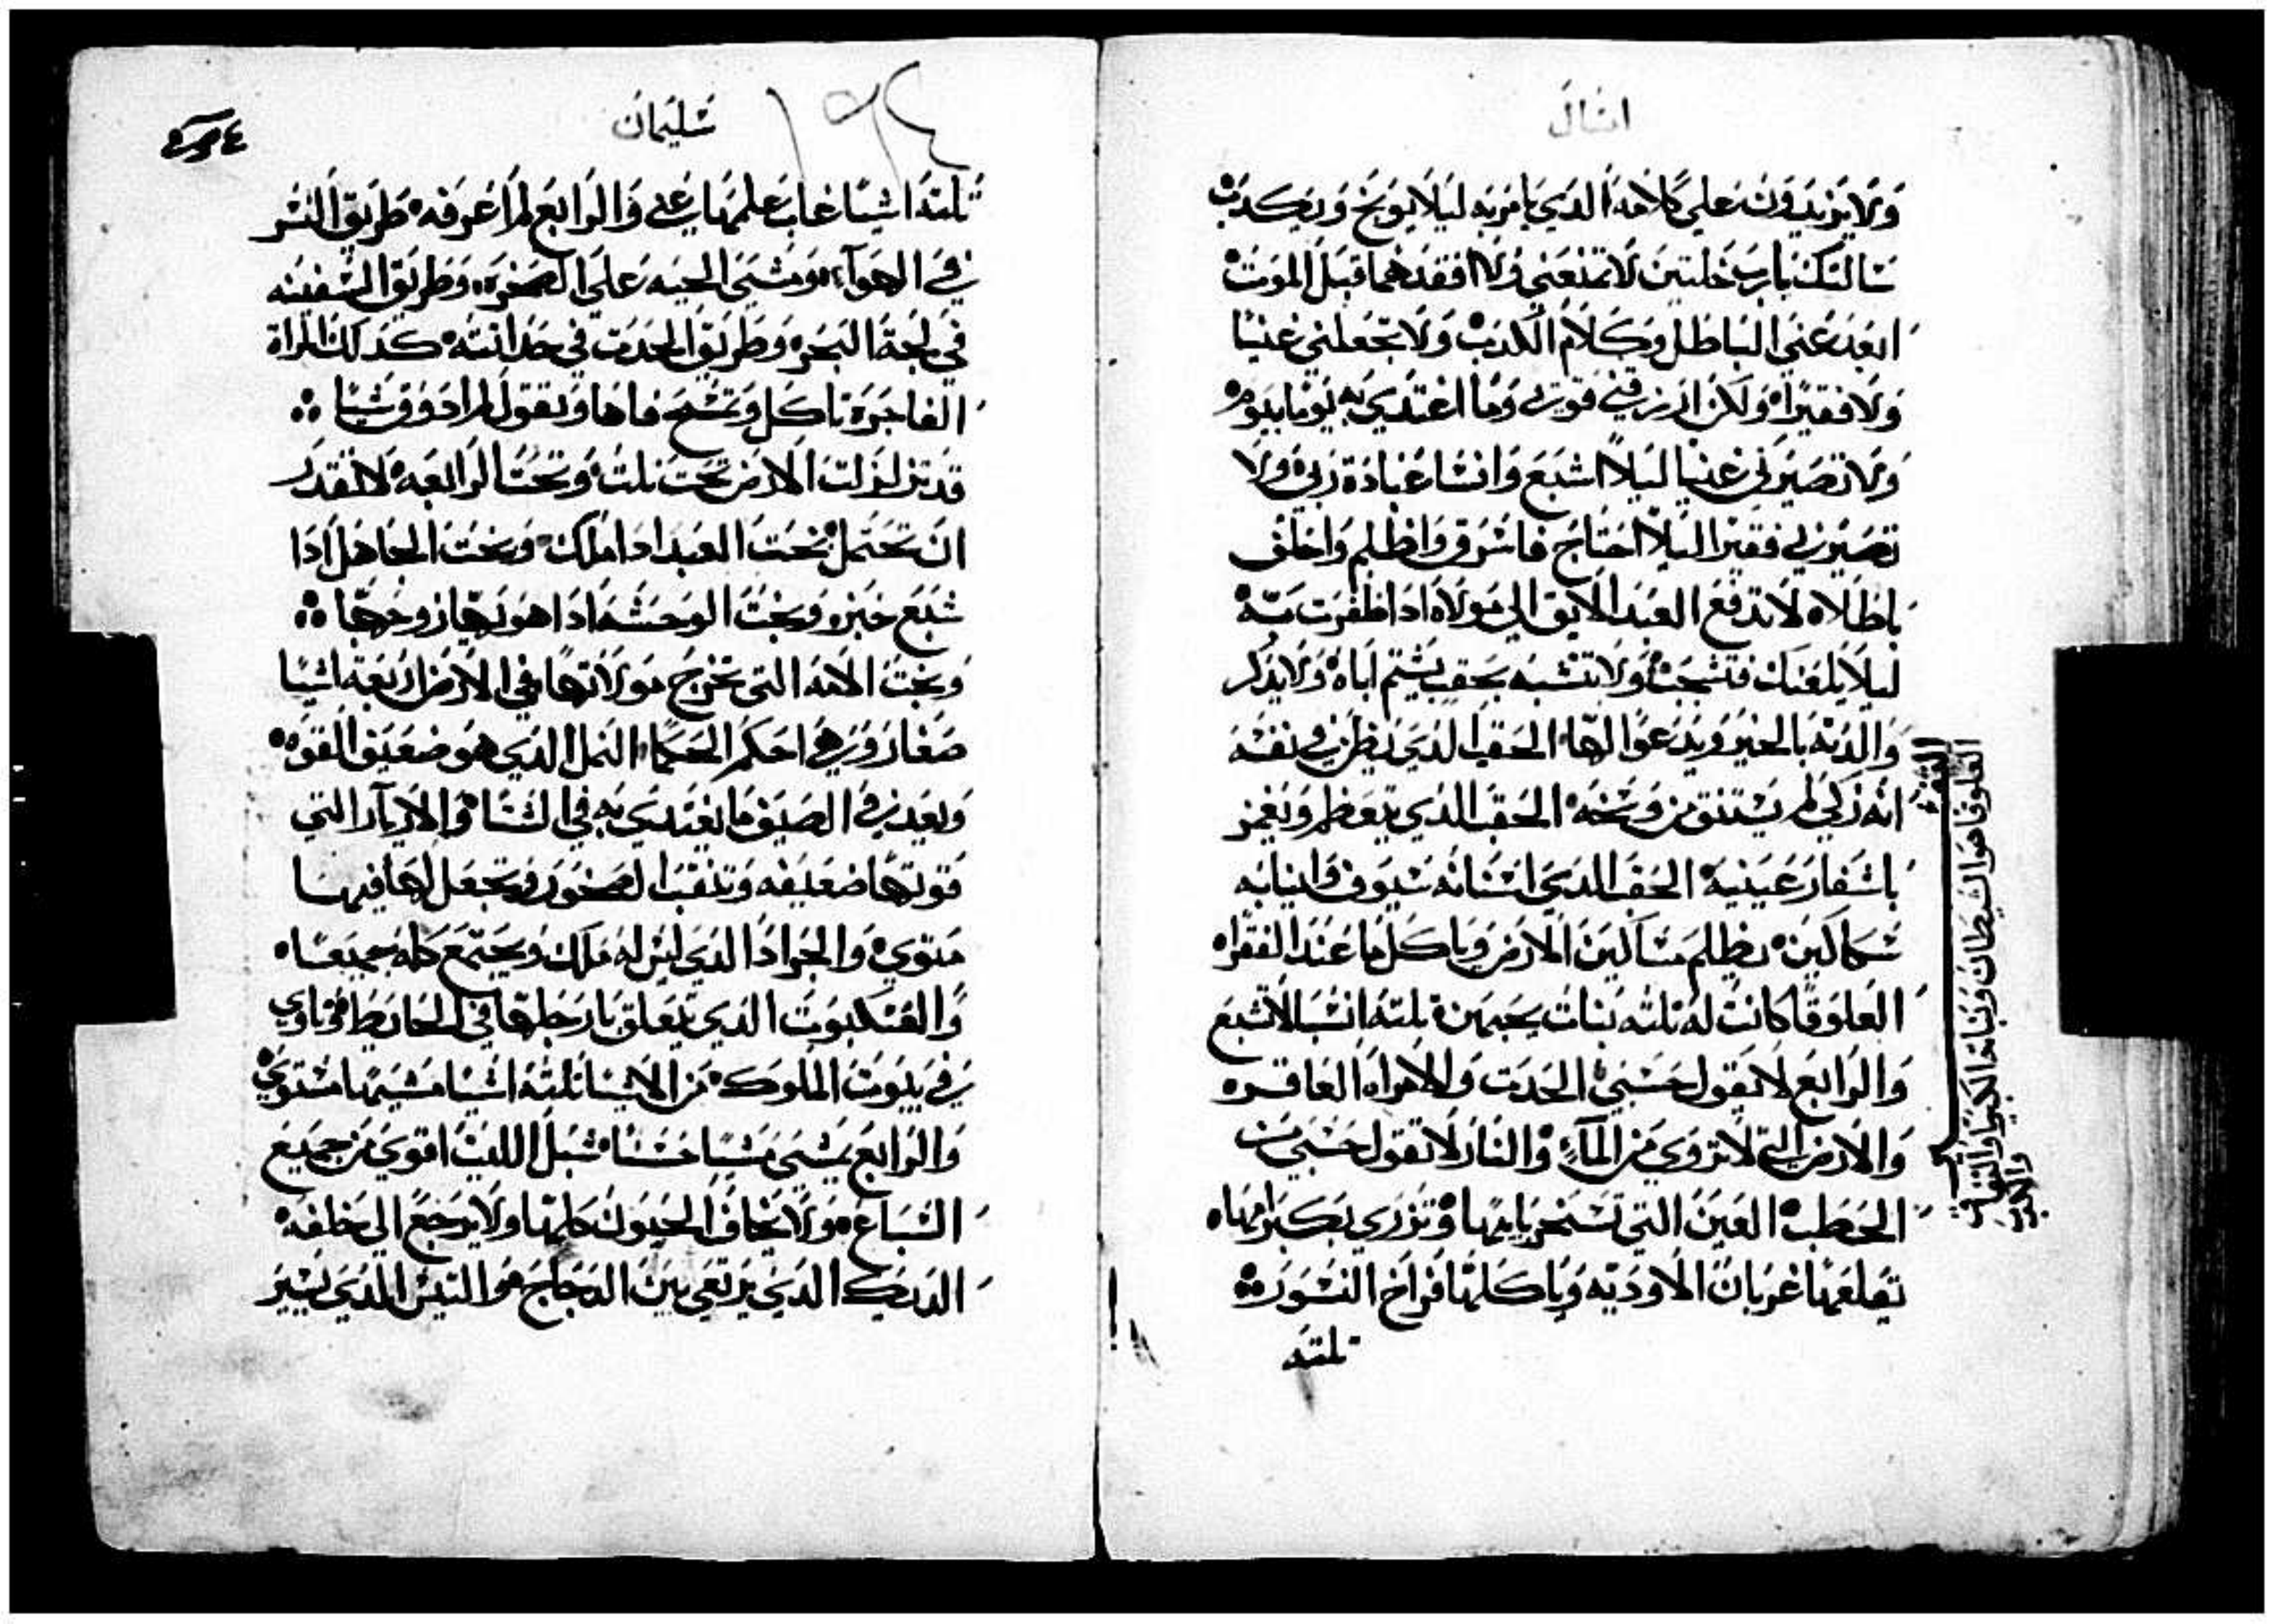 امثال
ولا يزيدون على كلامه الدي يامر به ليلا يوبخ ويكدب
سالتك يارب خلتين لا تمنعني ولا افقدهما قبل الموت
ابعد عني الباطل وكلام الكدب ولا تجعلني غنيا
ولا فقيرا ولكن ارزقني قوتي وما اغتدي به يوما بيوم
ولا تصيرني غنيا ليلا اشبع وانسا عبادة ربي ولا
تصيرني فقيرا ليلا احتاج فاسرق واظلم واحلف
باطلا لا تدفع العبد الابق الى مولاه ادا ظفرت به
ليلا يلعنك فتشجب ولا تتشبه بحقب يشتم اباه ولا يدكر
والدته بالخير ويدعوا لها الحقب الدي يظن في نفسه
انه زكي لم يستنق من وسخه الحقب الدي يتعظم ويغمز
باشفار عينيه الحقب الدي اسنانه سيوف وانيابه
سكاكين يظلم مساكين الارض وياكل ما عند الفقرا
العلوقا كانت له تلته بنات يحبهن تلته اشيا لا تشبع
والرابع لا يقول حسبي الحدت والامراه العاقره
والارض التي لا تروي من الماء والنار لا تقول حسبي من
الحطب العين التي تسخر بابيها وتزري بكبر امها
تقلعها غربان الاوديه وياكلها فراخ النسور
تلته
العلوقا هو الشيطان وبناته الكبريا والنفاق
سليمان
تلته اشيا غاب علمها عني والرابع لم اعرفه طريق النسر
في الهوآء ومشي الحيه على الصخره وطريق السفينه
في لجة البحر وطريق الحدت في حداتته كدلك المراة
الفاجرة تاكل وتمسح فاها وتقول لم ادوق شيا
قد تزلزلت الارض تحت تلت وتحت الرابعه لا تقدر
ان تحتمل تحت العبد ادا املك وتحت الجاهل ادا
شبع خبز وتحت الوحشه ادا هويها زوجها
وتحت الامه التي تخرج مولاتها في الارض اربعة اشيا
صغار وهي احكم الحكما النمل الدي هو ضعيف القوه
ويعد في الصيف ما يغتدي به في الشتا والارآنب التي
قوتها ضعيفه وتنقب الصخور وتجعل لها فيها
متوي والجراد الدي ليس له ملك ويجتمع كله جميعا
والعنكبوت الدي يتعلق بارجلها في الحايط وتاوي
في بيوت الملوك من الاشيا تلته اشيا مشيها مستوي
والرابع يمشي مشيا حسنا شبل الليت اقوي من جميع
السباع ولا يخاف الحيوان كلها ولا يرجع الى خلفه
الديك الدي يرتعي بين الدجاج هو التيس الدي يسير